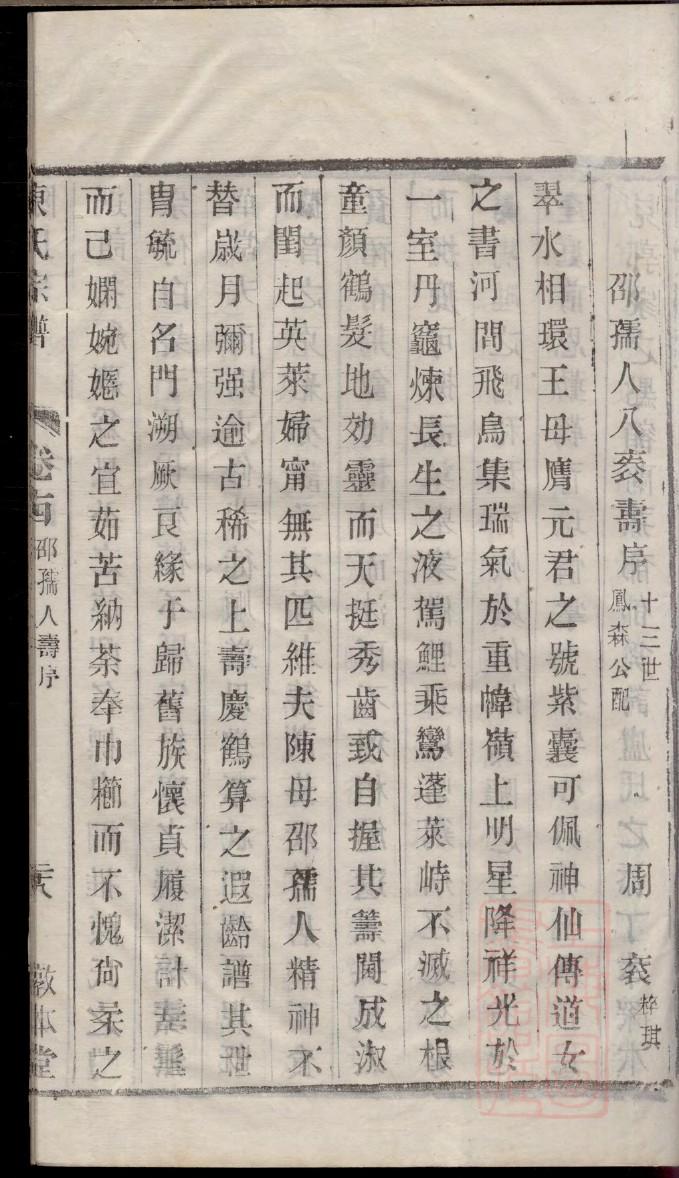 邵孺人八袠壽序 十三世鳳森公配 周袞梓琪
翠水相環王母膺元君之號紫囊可佩神仙傳道女
之書河間飛鳥集瑞氣於重幃嶺上明星降祥光於
一室丹竈煉長生之液駕鯉乘鸞蓬萊峙不滅之根
童顏鶴髮地効靈而天挺秀齒或自握其籌閫成淑
而閨起英萊婦甯無其匹維夫陳母邵孺人精神不
替歲月彌强逾古稀之上壽慶鶴算之遐齡譜其世
胄毓自名門溯厥良緣于歸舊族懷貞履潔計
而己嫻婉嫕之宜茹苦納荼奉巾櫛而不愧尙柔之
陳氏宗譜 卷 邵孺人壽序 六 敦本堂